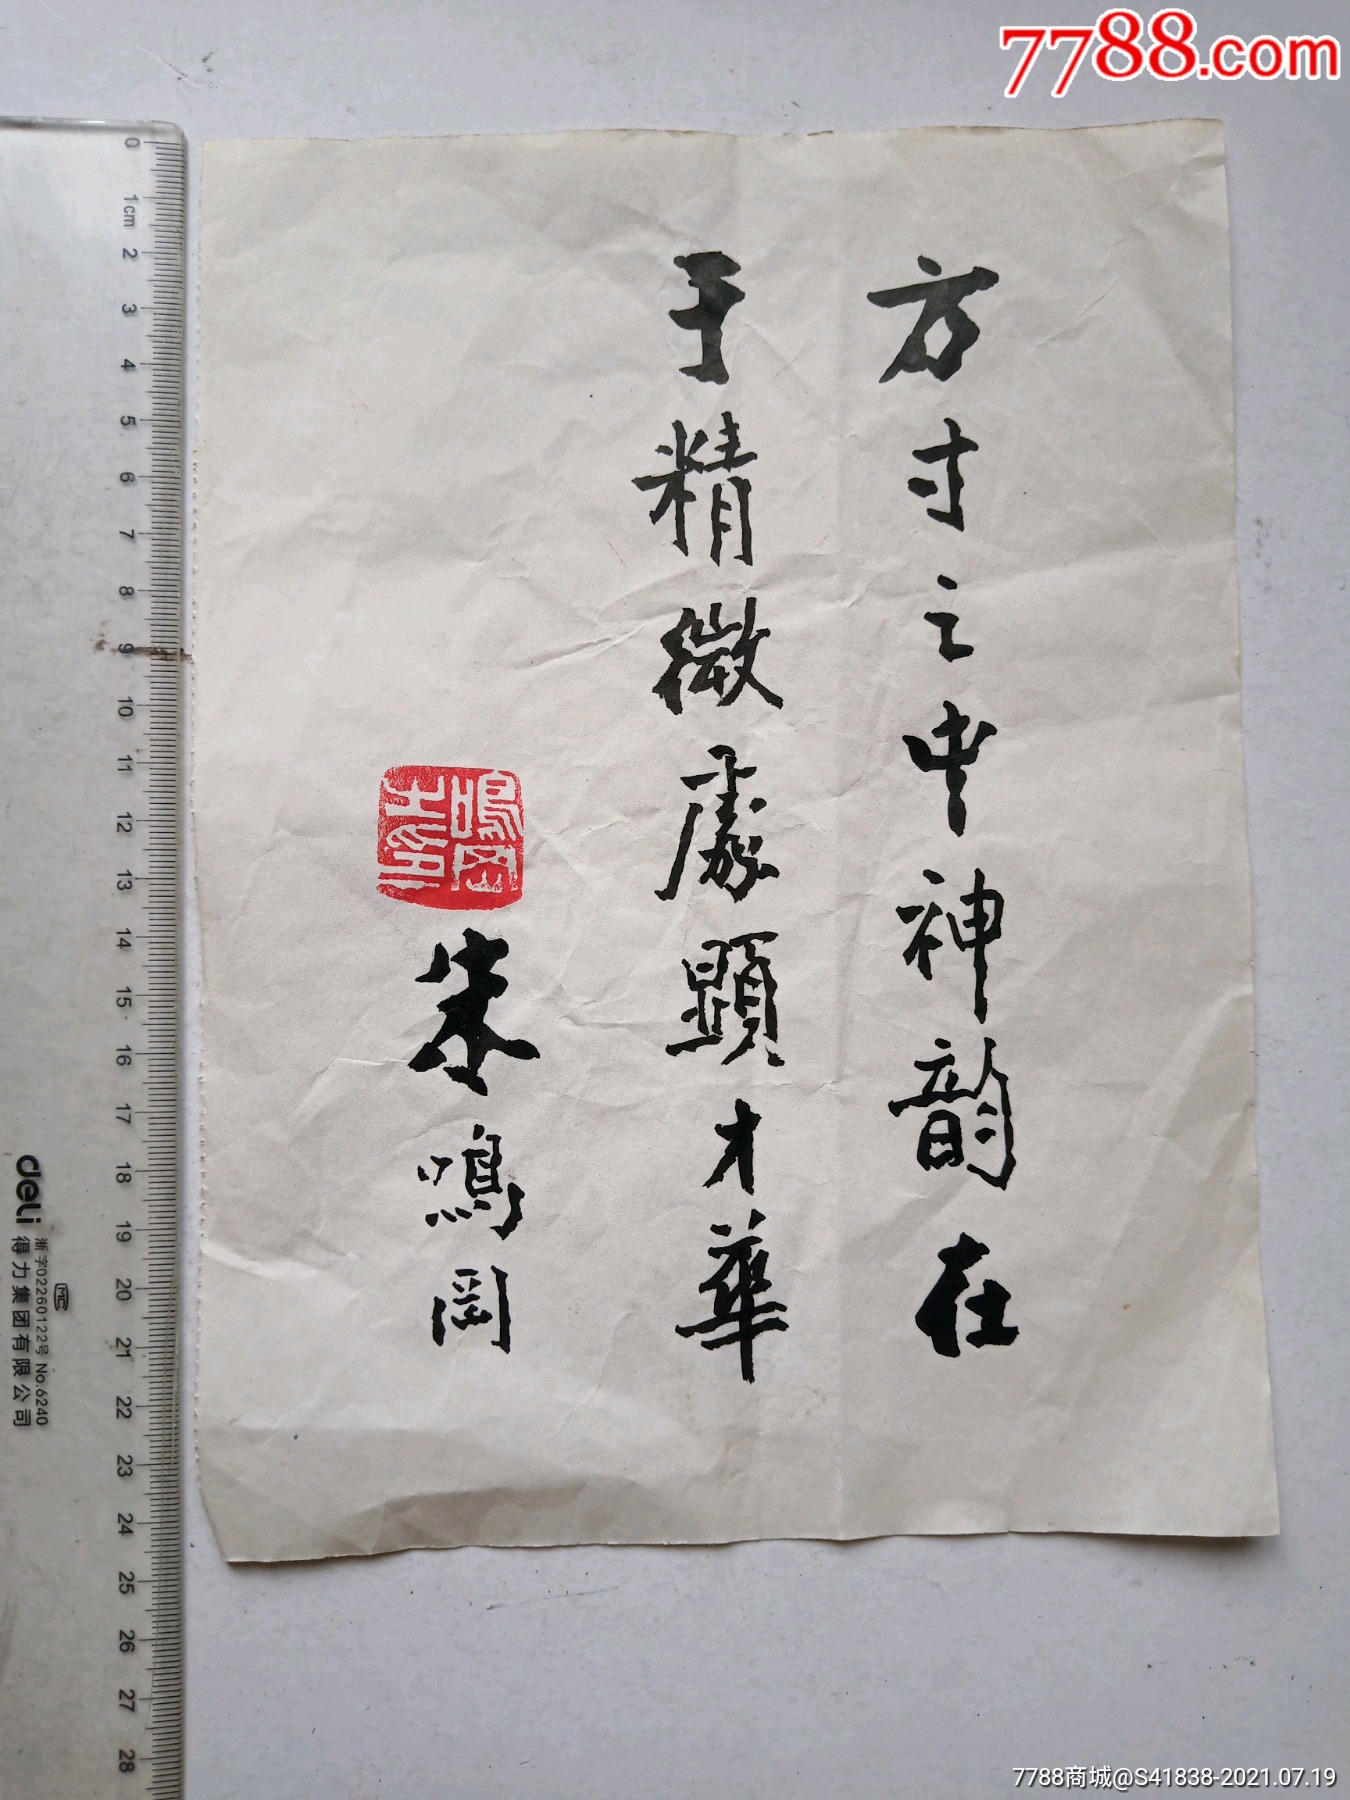 7788.com
方寸之中神韵在
于精微處顯才華
朱鳴岡
鳴岡
0 1cm 2 3 4 5 6 7 8 9 10 11 12 13 14 15 16 17 18 19 20 21 22 23 24 25 26 27 28
deli 得力集团有限公司
浙字02260122号 No.6240
MC
7788商城@S41838-2021.07.19